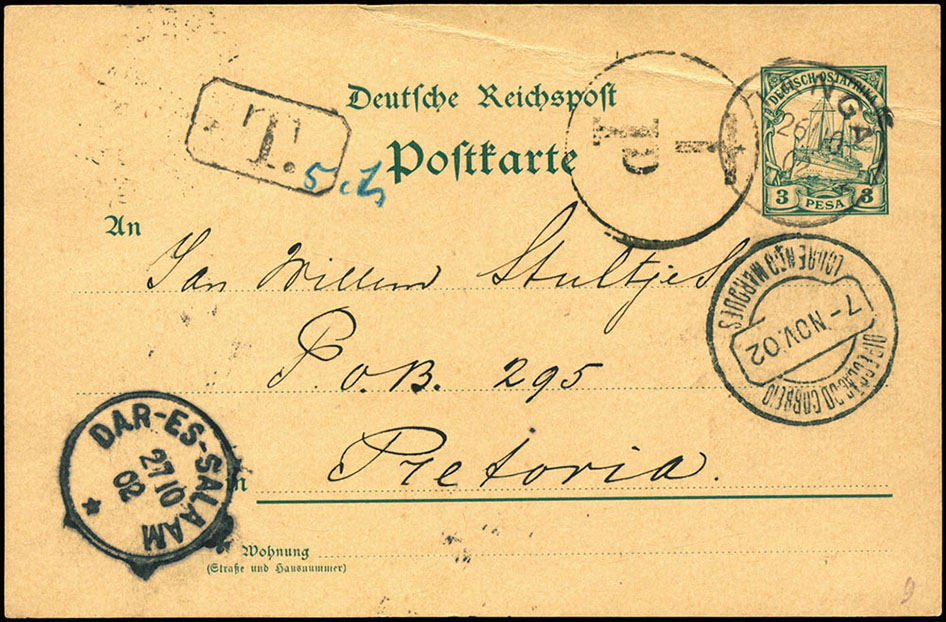 T.
5 cts
Deutsche Reichspost
Postkarte
1
D
NGA
26
DEUTSCH-OSTAFRIKA
3 PESA 3
An
Jan Willem Stultjes
P.O.B. 295
Pretoria.
LOURENÇO MARQUES
7-NOV.02
DIRECÇÃO DO CORREIO
DAR-ES-SALAAM
27 10
02
in
Wohnung
(Straße und Hausnummer)
9